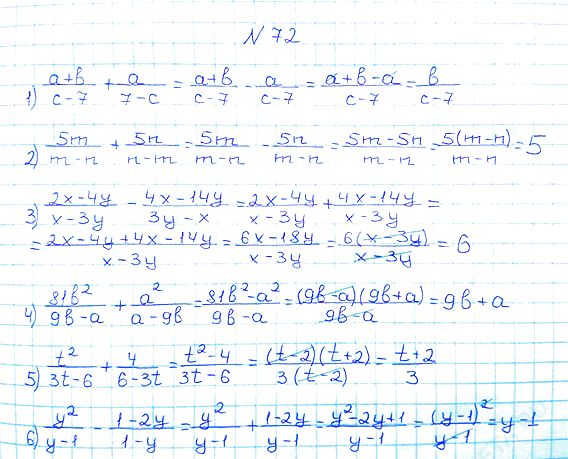 № 72
1) (a+b)/(c-7) + a/(7-c) = (a+b)/(c-7) - a/(c-7) = (a+b-a)/(c-7) = b/(c-7)
2) 5m/(m-n) + 5n/(n-m) = 5m/(m-n) - 5n/(m-n) = (5m-5n)/(m-n) = 5(m-n)/(m-n) = 5
3) (2x-4y)/(x-3y) - (4x-14y)/(3y-x) = (2x-4y)/(x-3y) + (4x-14y)/(x-3y) =
= (2x-4y+4x-14y)/(x-3y) = (6x-18y)/(x-3y) = 6(x-3y)/(x-3y) = 6
4) 81b²/(9b-a) + a²/(a-9b) = (81b²-a²)/(9b-a) = (9b-a)(9b+a)/(9b-a) = 9b+a
5) t²/(3t-6) + 4/(6-3t) = (t²-4)/(3t-6) = (t-2)(t+2)/3(t-2) = (t+2)/3
6) y²/(y-1) - (1-2y)/(1-y) = y²/(y-1) + (1-2y)/(y-1) = (y²-2y+1)/(y-1) = (y-1)²/(y-1) = y-1